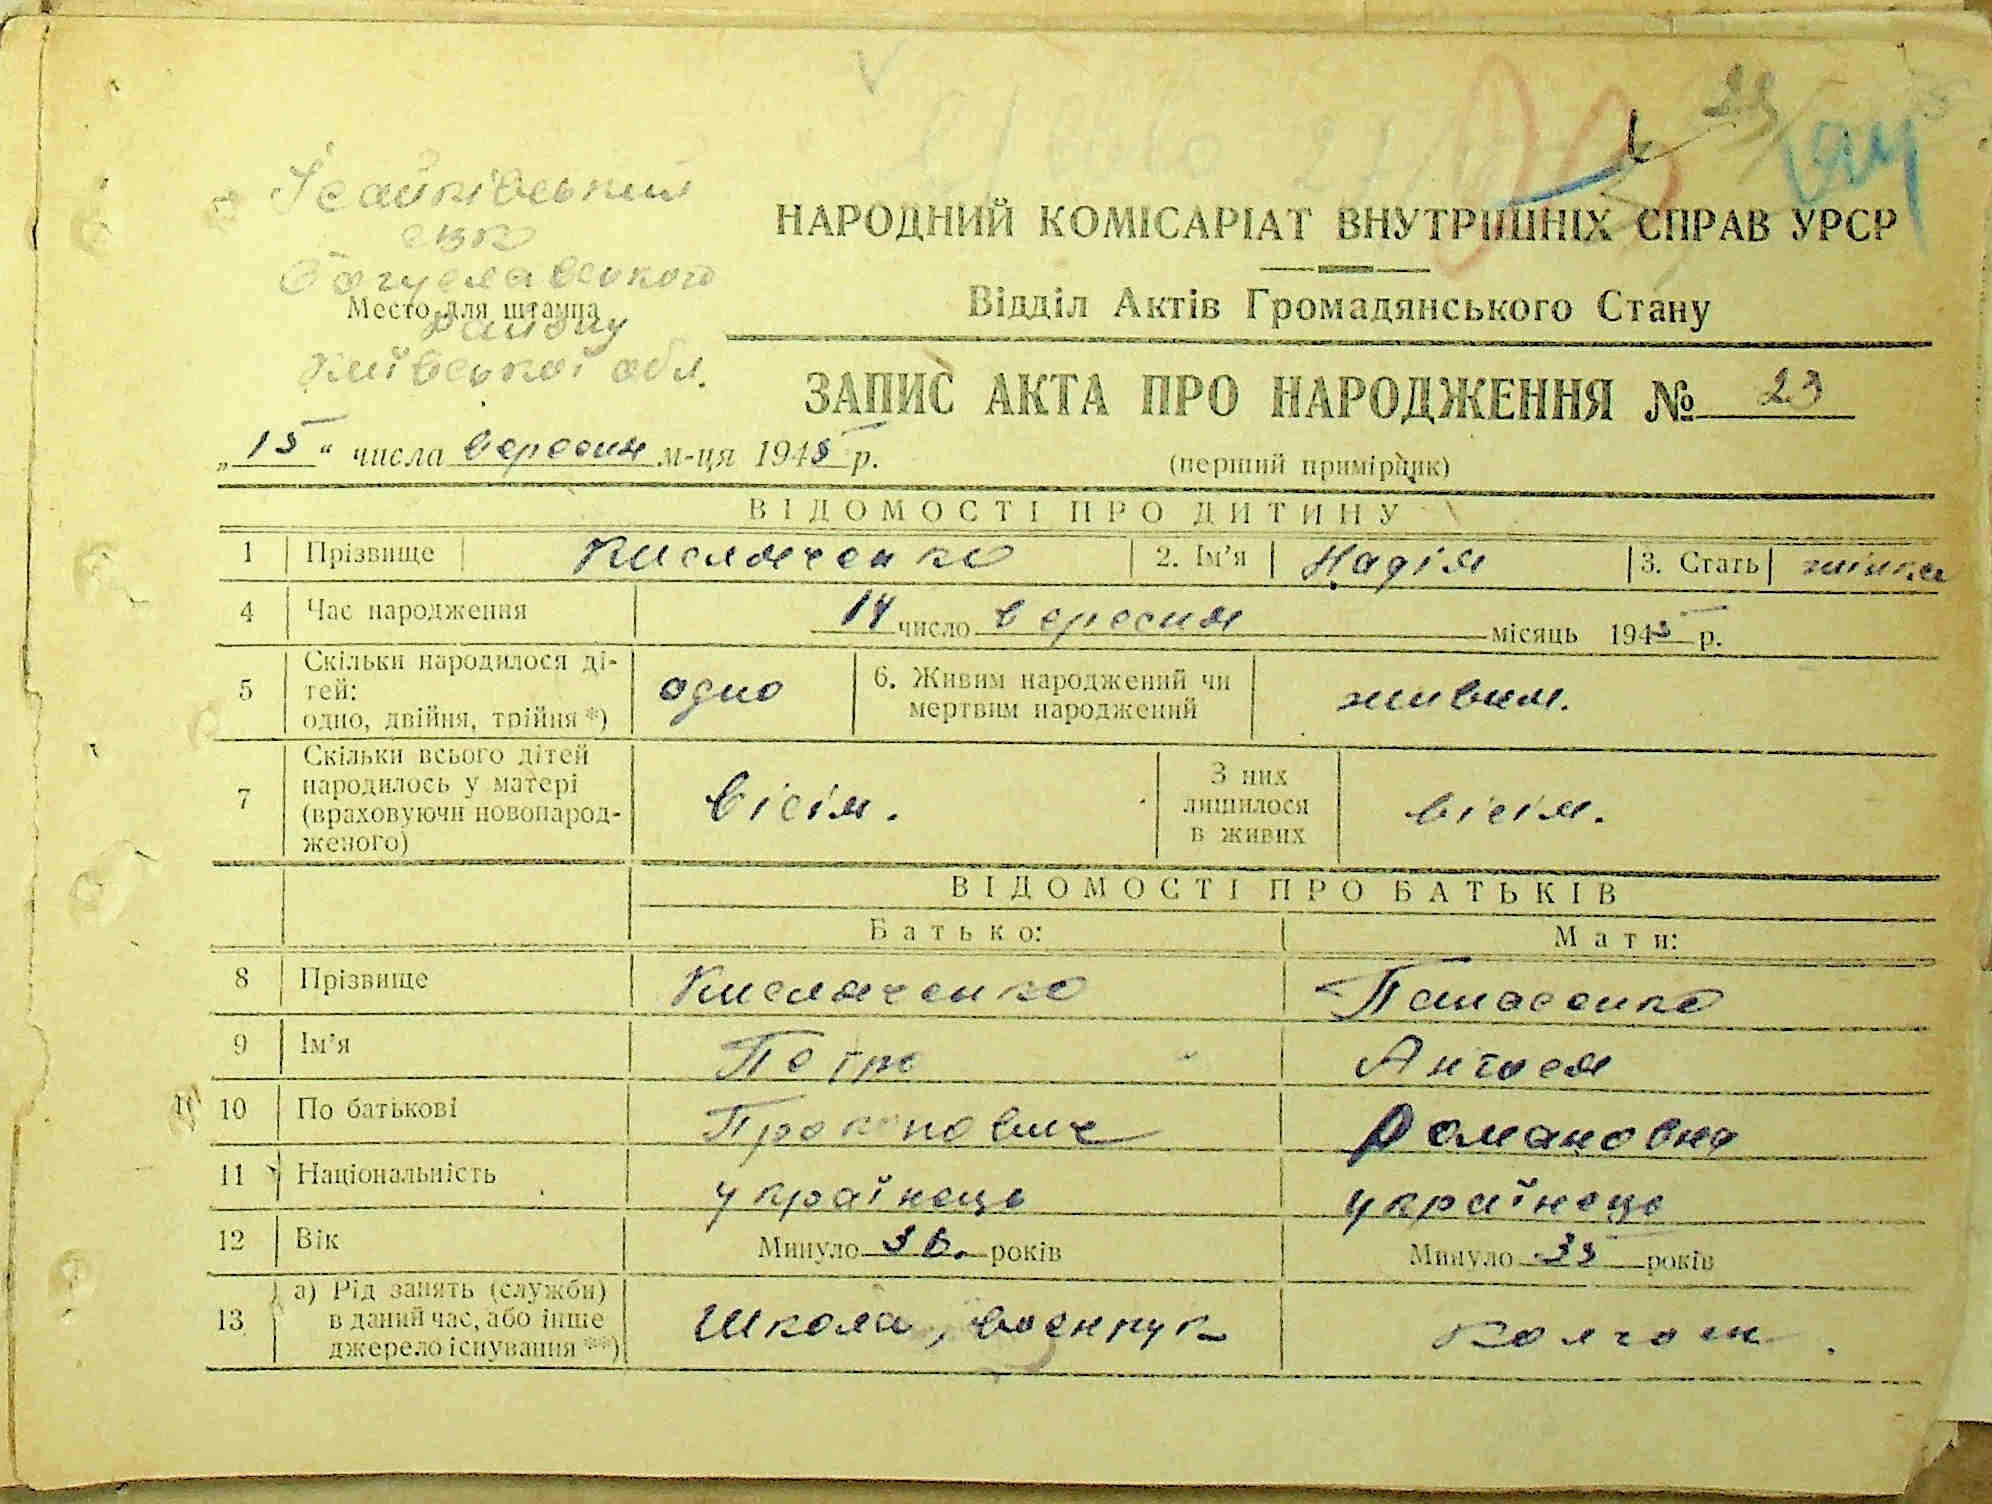 Ісайківський
свк
Богуславського
Место для штампа
району
Київської обл.
НАРОДНИЙ КОМІСАРІАТ ВНУТРІШНІХ СПРАВ УРСР
Відділ Актів Громадянського Стану
ЗАПИС АКТА ПРО НАРОДЖЕННЯ № 23
„15“ числа вересня м-ця 1945 р.
(перший примірник)
ВІДОМОСТІ ПРО ДИТИНУ
1 Прізвище Кислюченко 2. Ім'я Надія 3. Стать жінка
4 Час народження 14 число вересня місяць 1945 р.
5 Скільки народилося ді-
тей:
одно, двійня, трійня *) одно 6. Живим народжений чи
мертвим народжений живим.
7 Скільки всього дітей
народилось у матері
(враховуючи новонарод-
женого) вісім. З них
лишилося
в живих вісім.
ВІДОМОСТІ ПРО БАТЬКІВ
Батько: Мати:
8 Прізвище Кислюченко Панасенко
9 Ім'я Петро
10 По батькові Прокопович Романовна
11 Національність українець українець
12 Вік Минуло 36. років Минуло років
13 а) Рід занять (служби)
в даний час, або інше
джерело існування **) Школа, военрук Колгосп.